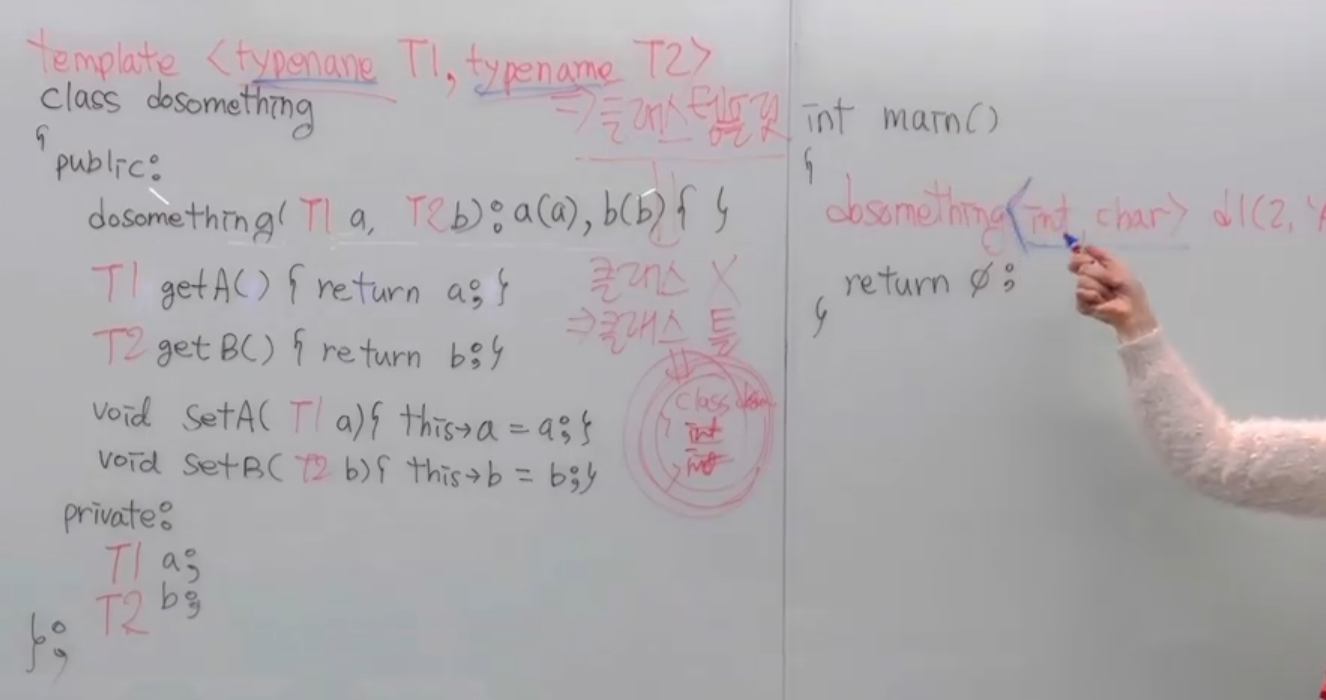 template <typename T1, typename T2>
class dosomething
⇒ 클래스
{
public:
dosomething( T1 a, T2 b): a(a), b(b) { }
T1 getA() { return a; }
T2 getB() { return b; }
void setA( T1 a){ this→a = a; }
void setB( T2 b){ this→b = b; }
private:
T1 a;
T2 b;
};
클래스 X
⇒ 클래스 틀
class
{
int
int
}
int main()
{
dosomething<int, char> d1(2, 'A
return 0;
}